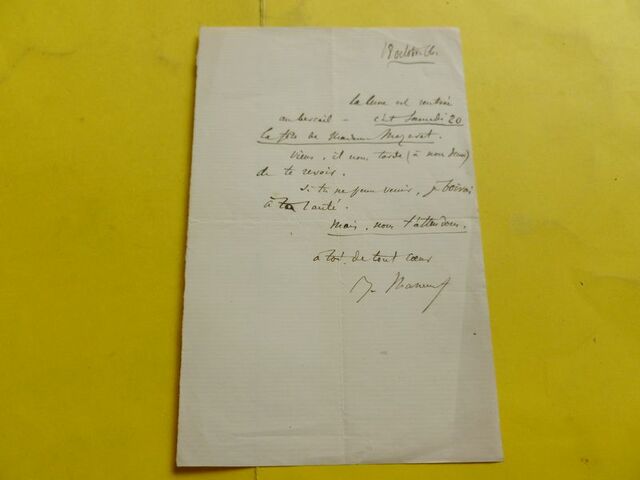 18 octobre
la lune est rentrée
au bercail – c'est Samedi 20
la fête de madame
Viens, il nous tarde (à nous deux)
de te revoir.
Si tu ne peux venir, je boirai
à ta santé.
Mais, nous t'attendons.
à toi, de tout cœur